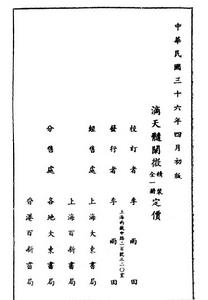 中華民國三十六年四月初版
滴天髓闡微 精裝全一冊 定價
校訂者 李雨田
發行者 李雨田
上海西藏中路二百號三二〇室
經售處 上海大東書局
上海百新書局
分售處 各地大東書局
香港百新書局